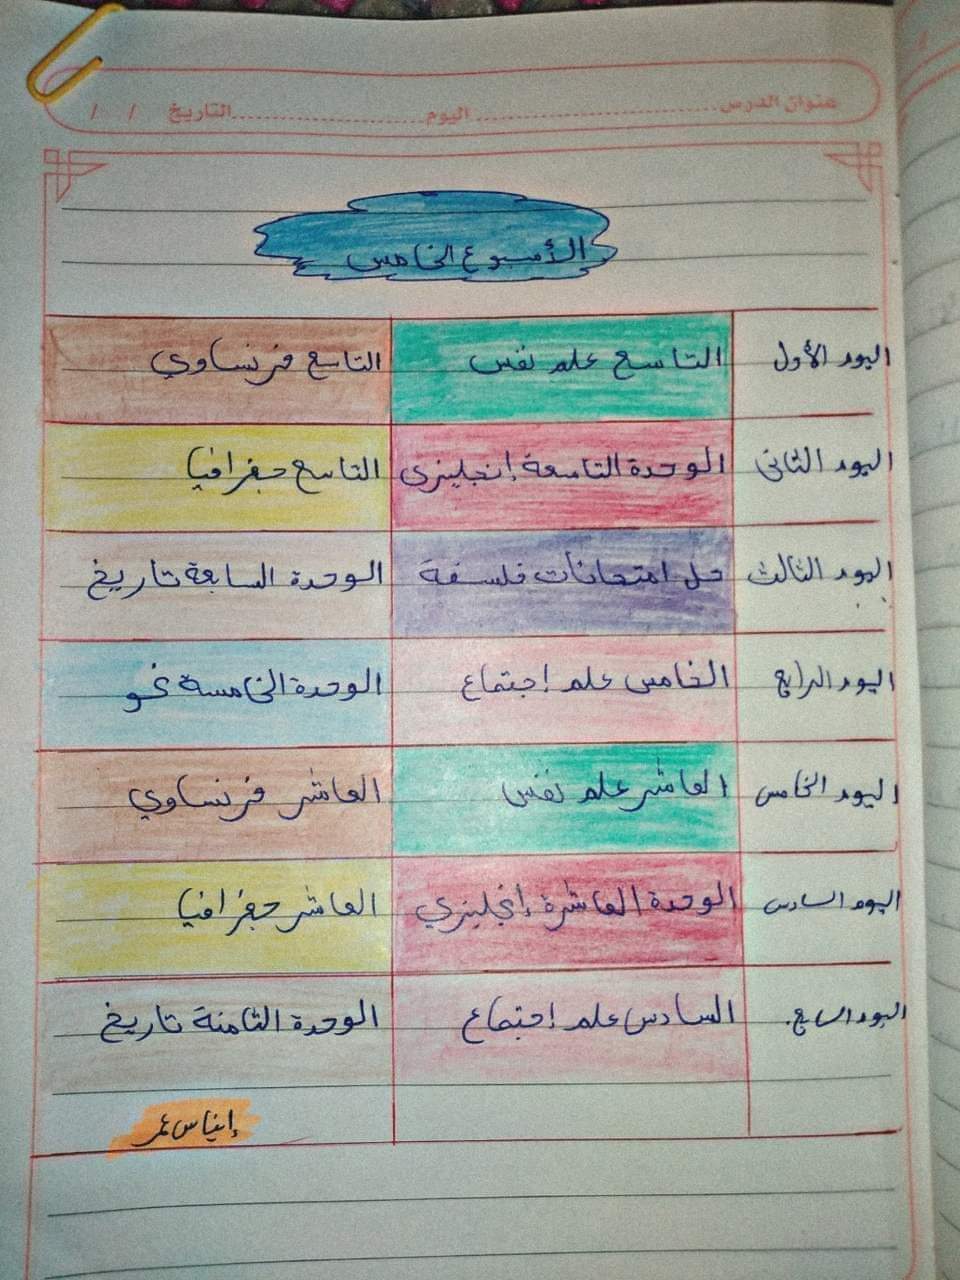 عنوان الدرس ........ اليوم ........ التاريخ / /
الأسبوع الخامس
اليوم الأول التاسع علم نفس التاسع فرنساوي
اليوم الثانى الوحدة التاسعة إنجليزى التاسع جغرافيا
اليوم الثالث حل امتحانات فلسفة الوحدة السابعة تاريخ
اليوم الرابع الخامس علم إجتماع الوحدة الخامسة نحو
اليوم الخامس العاشر علم نفس العاشر فرنساوي
اليوم السادس الوحدة العاشرة إنجليزي العاشر جغرافيا
اليوم السابع. السادس علم إجتماع الوحدة الثامنة تاريخ
إيناس عمر